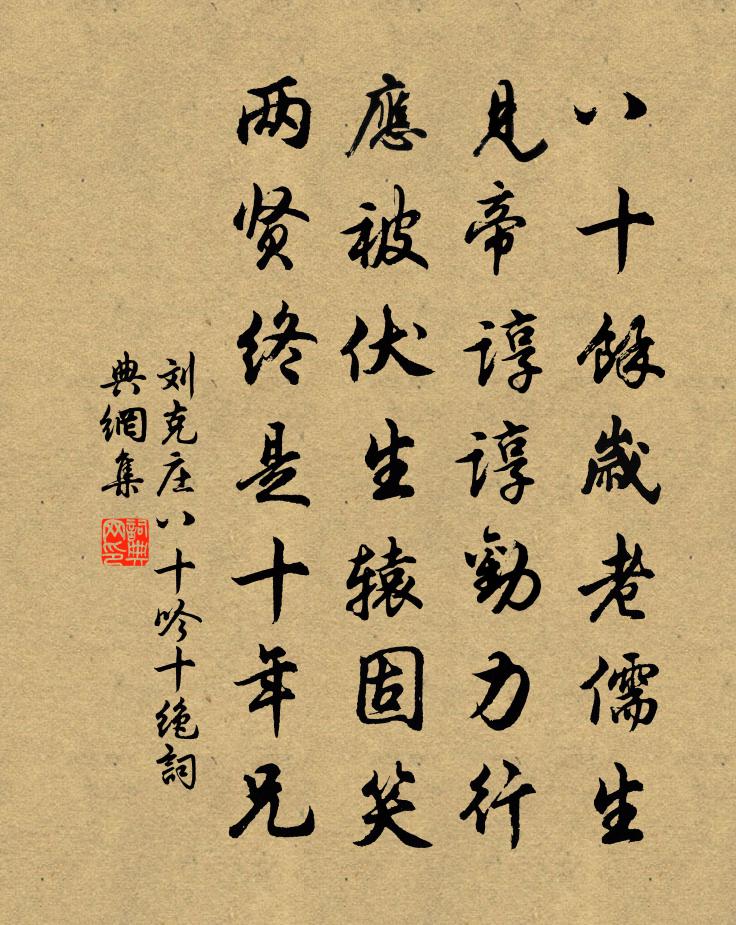 八十餘歲老儒生
見帝諄諄勸力行
應被伏生辕固笑
两贤终是十年兄
刘克庄八十吟十绝詞
典網集
詞典网印